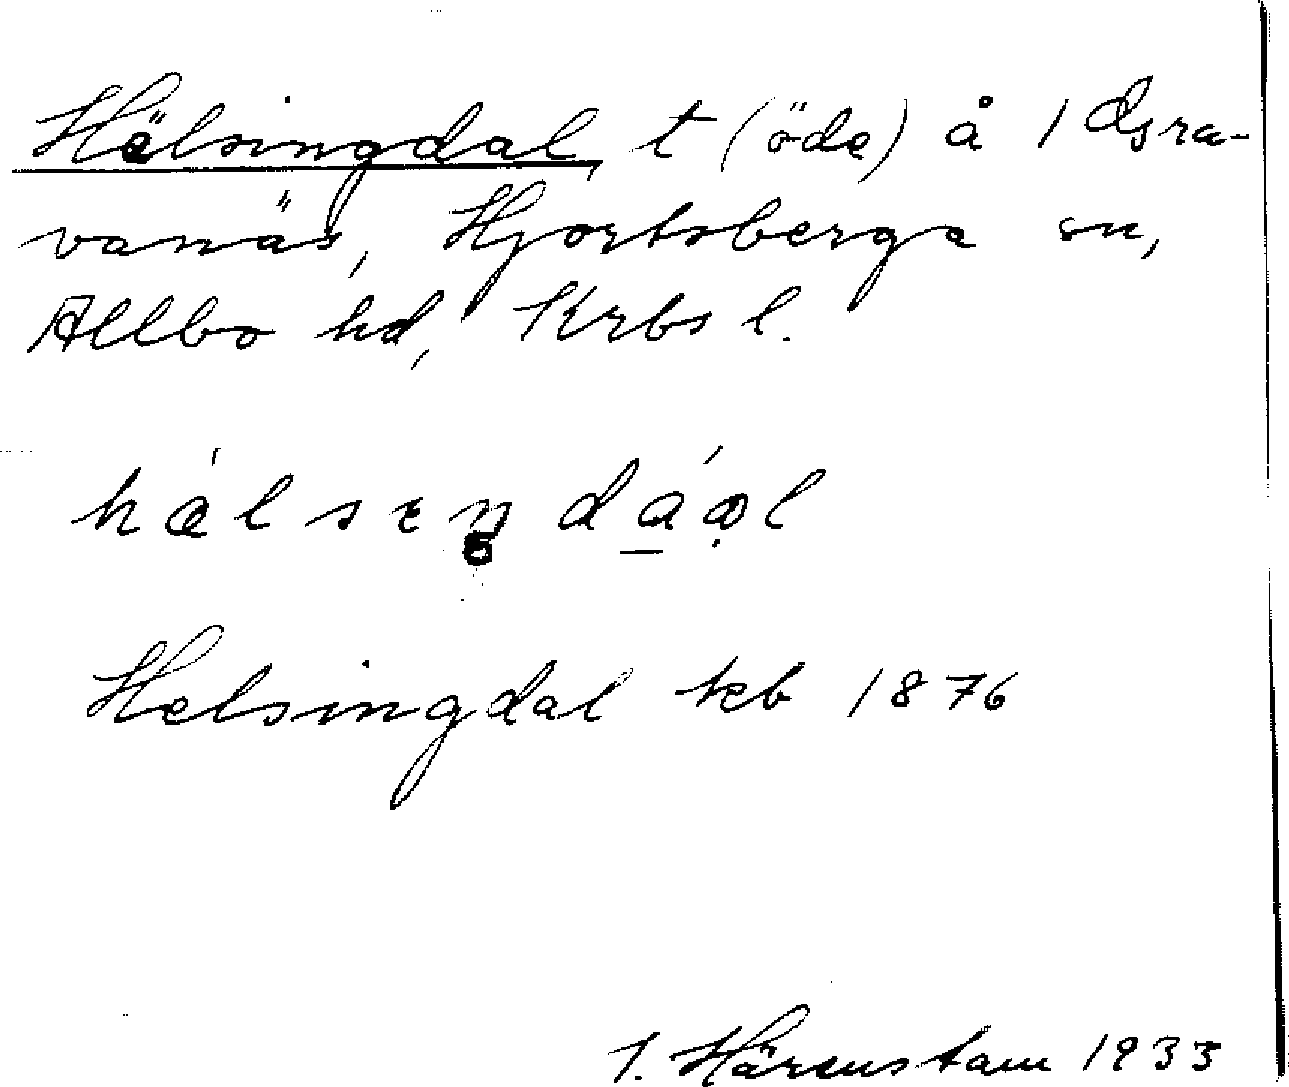 Hälsingdal, t (öde) å 1 Osra-
vanäs, Hjortsberga sn,
Allbo hd, Krbs l.
hälseŋ dáol
Helsingdal kb 1876
I. Härenstam 1933